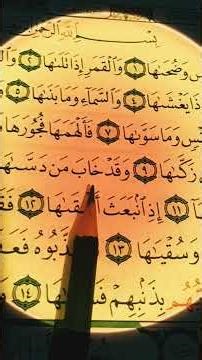 بِسْمِ ٱللَّهِ ٱلرَّحْمَٰنِ
وَضُحَىٰهَا ١ وَٱلْقَمَرِ إِذَا تَلَىٰهَا ٢
يَغْشَىٰهَا ٤ وَٱلسَّمَآءِ وَمَا بَنَىٰهَا ٥
وَمَا سَوَّىٰهَا ٧ فَأَلْهَمَهَا فُجُورَهَا
زَكَّىٰهَا ٩ وَقَدْ خَابَ مَن دَسَّىٰهَا
١١ إِذِ ٱنۢبَعَثَ ١٢
وَسُقْيَٰهَا ١٣
بِذَنۢبِهِمْ ١٤